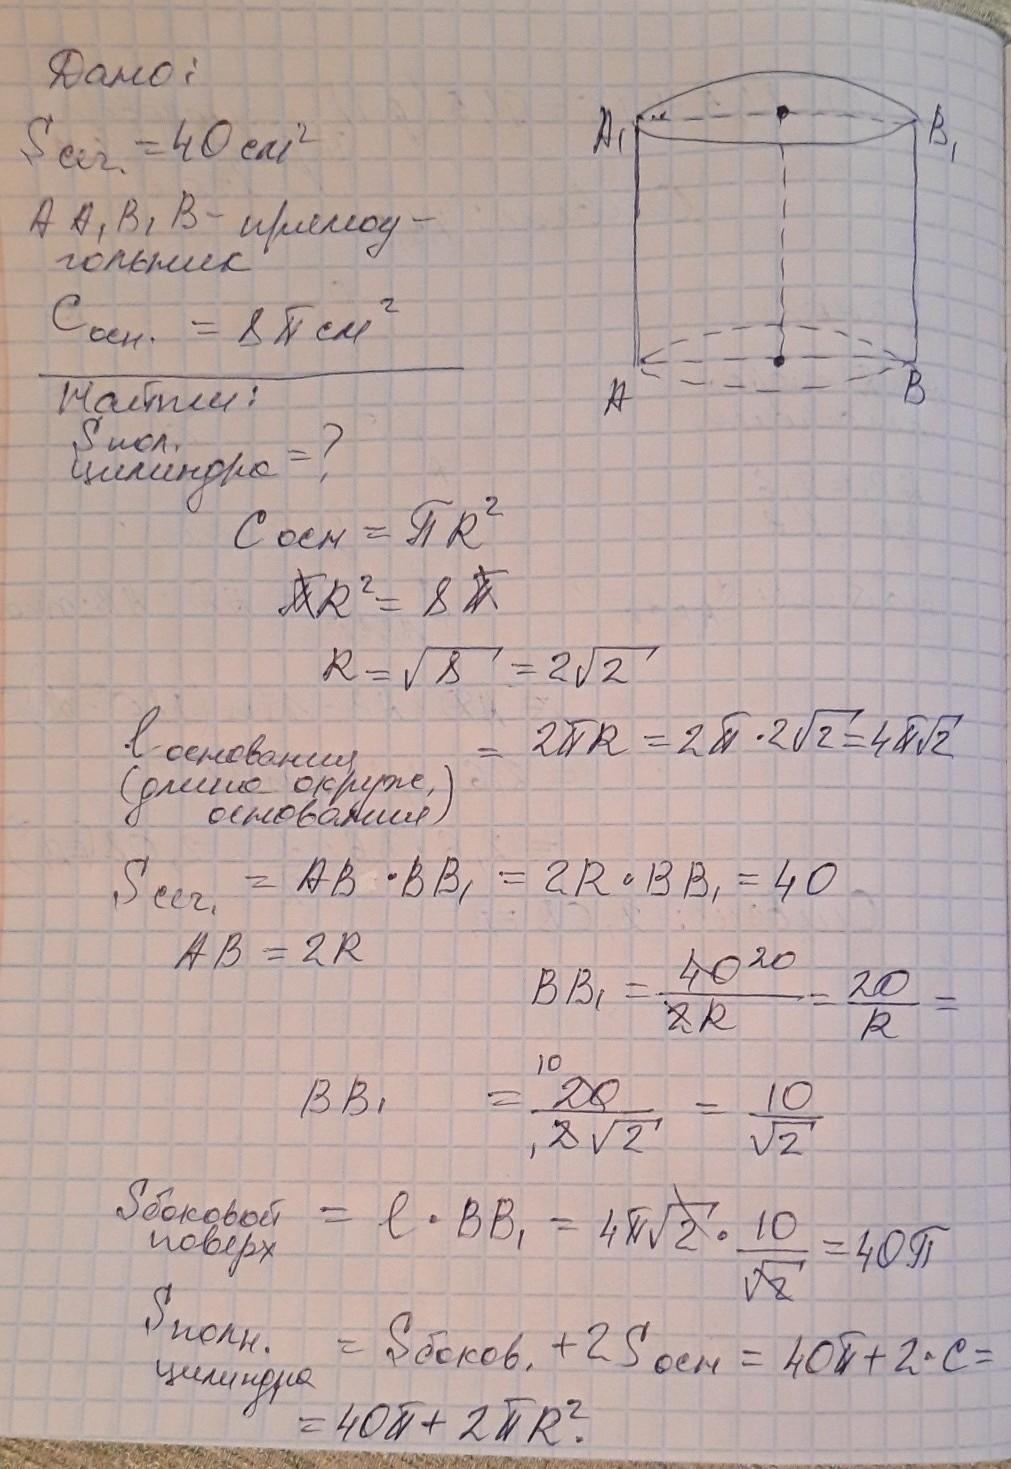 Дано:
Sсеч. = 40 см²
AA₁B₁B - прямоу-
гольник
Cосн. = 8π см²
Найти:
Sпол.
цилиндра = ?
A₁
B₁
A
B
Cосн = πR²
πR² = 8π
R = √8 = 2√2
l основания = 2πR = 2π·2√2 = 4π√2
(длина окруж.
основания)
Sсеч. = AB · BB₁ = 2R · BB₁ = 40
AB = 2R
BB₁ = 40 20/2R = 20/R =
BB₁ = 10 20/1 2√2 = 10/√2
Sбоковой
поверх = l · BB₁ = 4π√2 · 10/√2 = 40π
Sполн.
цилиндра = Sбоков. + 2Sосн = 40π + 2·C =
= 40π + 2πR².